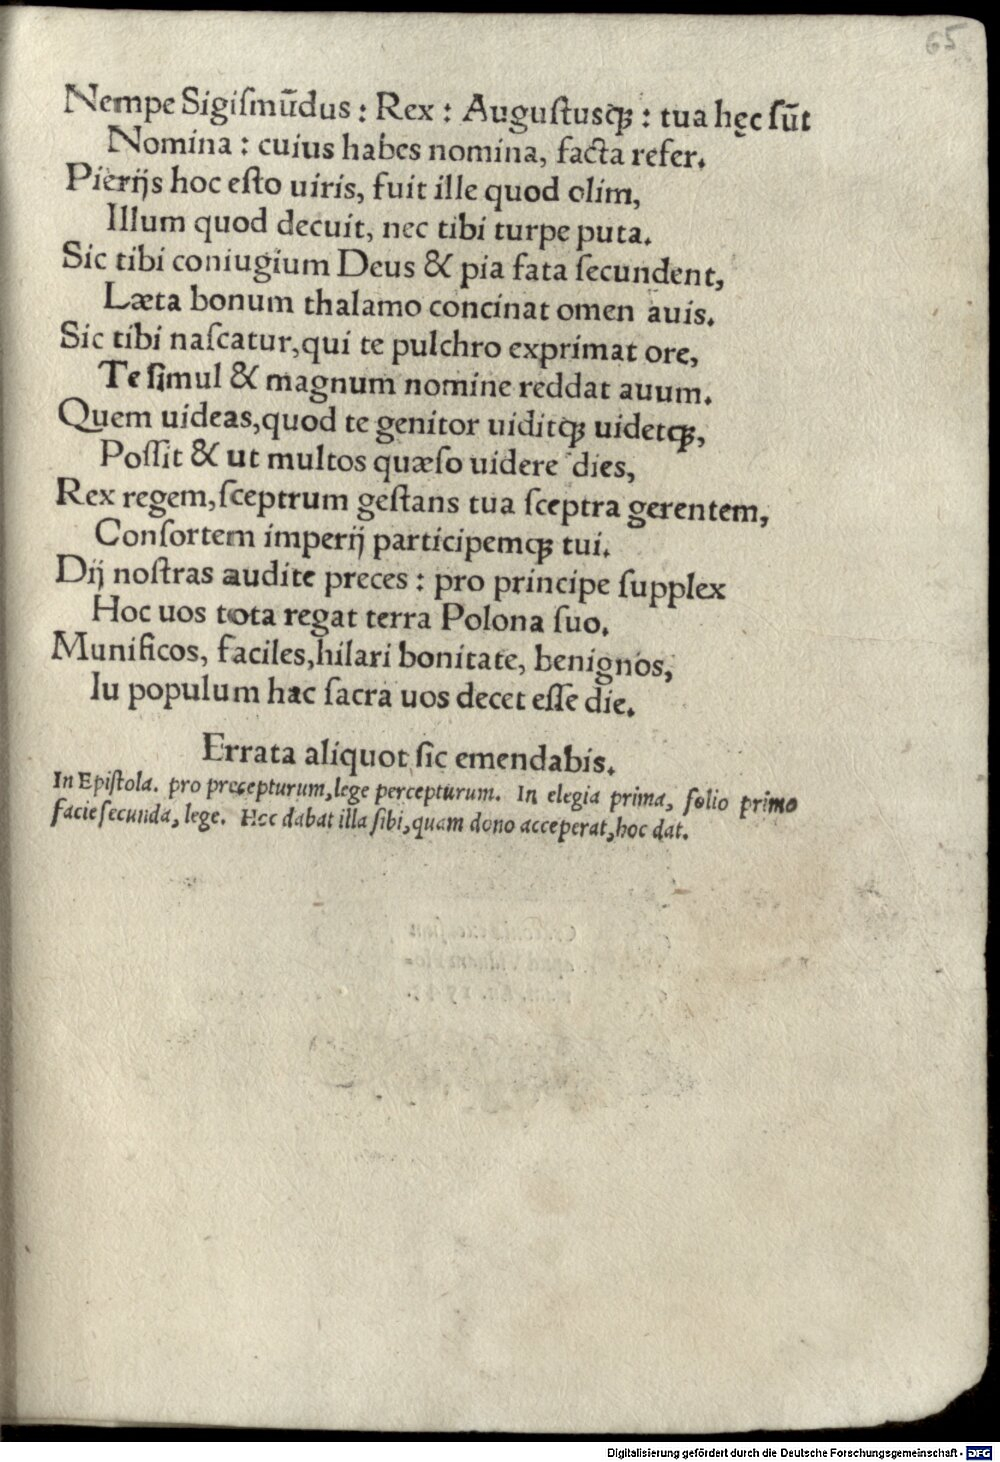 65
Nempe Sigiſmũdus : Rex : Auguſtusqꝫ : tua hęc ſũt
Nomina : cuius habes nomina, facta refer.
Pierijs hoc eſto uiris, fuit ille quod olim,
Illum quod decuit, nec tibi turpe puta.
Sic tibi coniugium Deus & pia fata ſecundent,
Læta bonum thalamo concinat omen auis.
Sic tibi naſcatur, qui te pulchro exprimat ore,
Te ſimul & magnum nomine reddat auum.
Quem uideas, quod te genitor uiditqꝫ uidetqꝫ,
Poſſit & ut multos quæſo uidere dies,
Rex regem, ſceptrum geſtans tua ſceptra gerentem,
Conſortem imperij participemqꝫ tui.
Dij noſtras audite preces : pro principe ſupplex
Hoc uos tota regat terra Polona ſuo.
Munificos, faciles, hilari bonitate, benignos,
Iu populum hac ſacra uos decet eſſe die.
Errata aliquot ſic emendabis.
In Epiſtola. pro pręcepturum, lege percepturum. In elegia prima, folio primo
facie ſecunda, lege. Hęc dabat illa ſibi, quam dono acceperat, hoc dat.
Digitalisierung gefördert durch die Deutsche Forschungsgemeinschaft - DFG